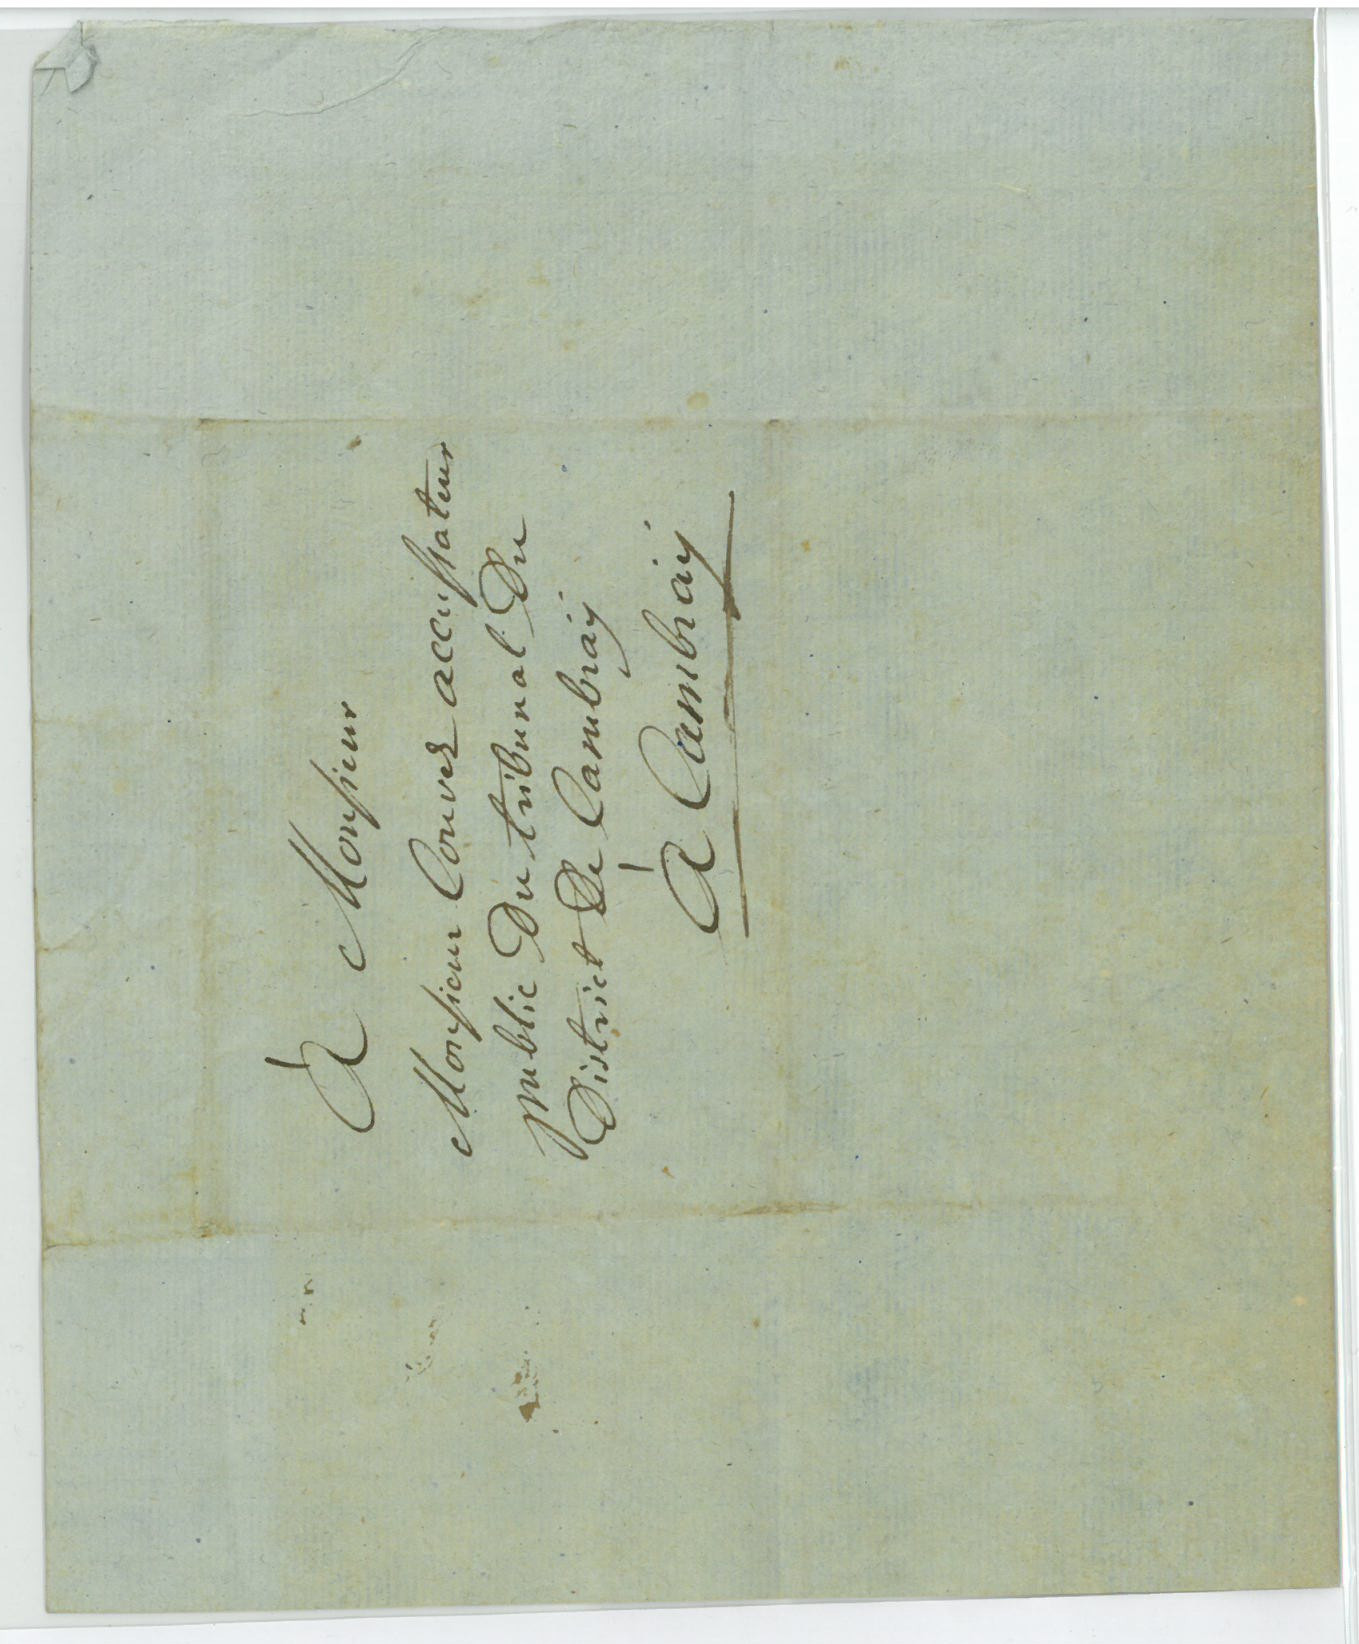 À Monsieur
Monsieur Couvez accussateur
public Du tribunal Du
District De Cambraÿ
À Cambraÿ